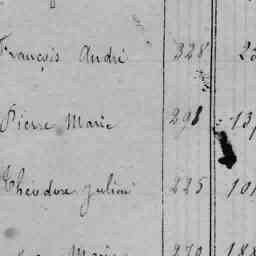 François André 328
Pierre Marie 298
Théodore Julien 225
Marie 270